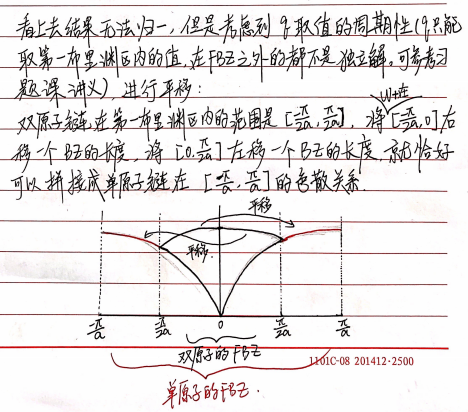 看上去结果无法归一,但是考虑到 q 取值的周期性(q只能
取第一布里渊区内的值,在FBZ之外的都不是独立解,可参考习
题课讲义),进行平移:
W+在
双原子链在第一布里渊区内的范围是 [-π/2a, π/2a],将[-π/2a,0]右
移一个BZ的长度,将 [0,π/2a]左移一个BZ的长度,就恰好
可以拼接成单原子链在 [-π/a, π/a]的色散关系.
平移
平移.
-π/a -π/2a 0 π/2a π/a
双原子的FBZ
1101C-08 201412·2500
单原子的FBZ.